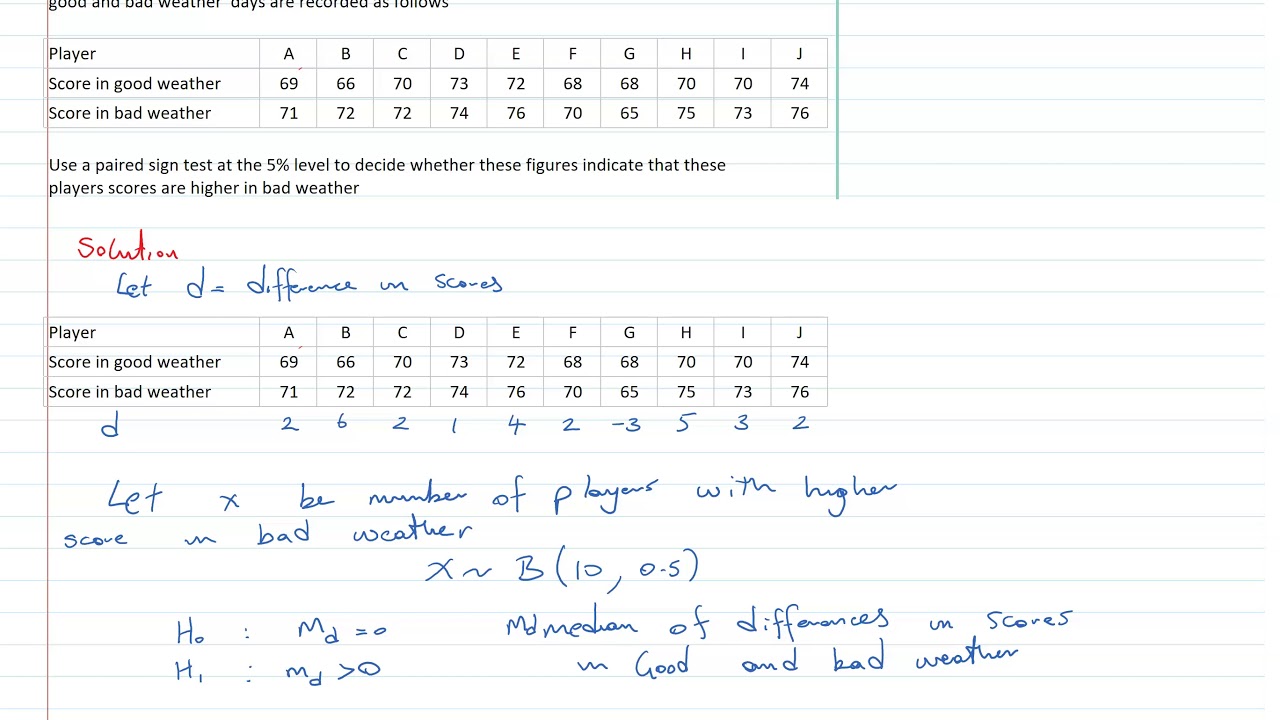 good and bad weather days are recorded as follows
Player A B C D E F G H I J
Score in good weather 69 66 70 73 72 68 68 70 70 74
Score in bad weather 71 72 72 74 76 70 65 75 73 76
Use a paired sign test at the 5% level to decide whether these figures indicate that these
players scores are higher in bad weather
Solution
Let d = difference in scores
Player A B C D E F G H I J
Score in good weather 69 66 70 73 72 68 68 70 70 74
Score in bad weather 71 72 72 74 76 70 65 75 73 76
d 2 6 2 1 4 2 -3 5 3 2
Let x be number of players with higher
score in bad weather
X ~ B(10, 0.5)
H₀ : Md = 0 Md median of differences in scores
H₁ : md > 0 in Good and bad weather